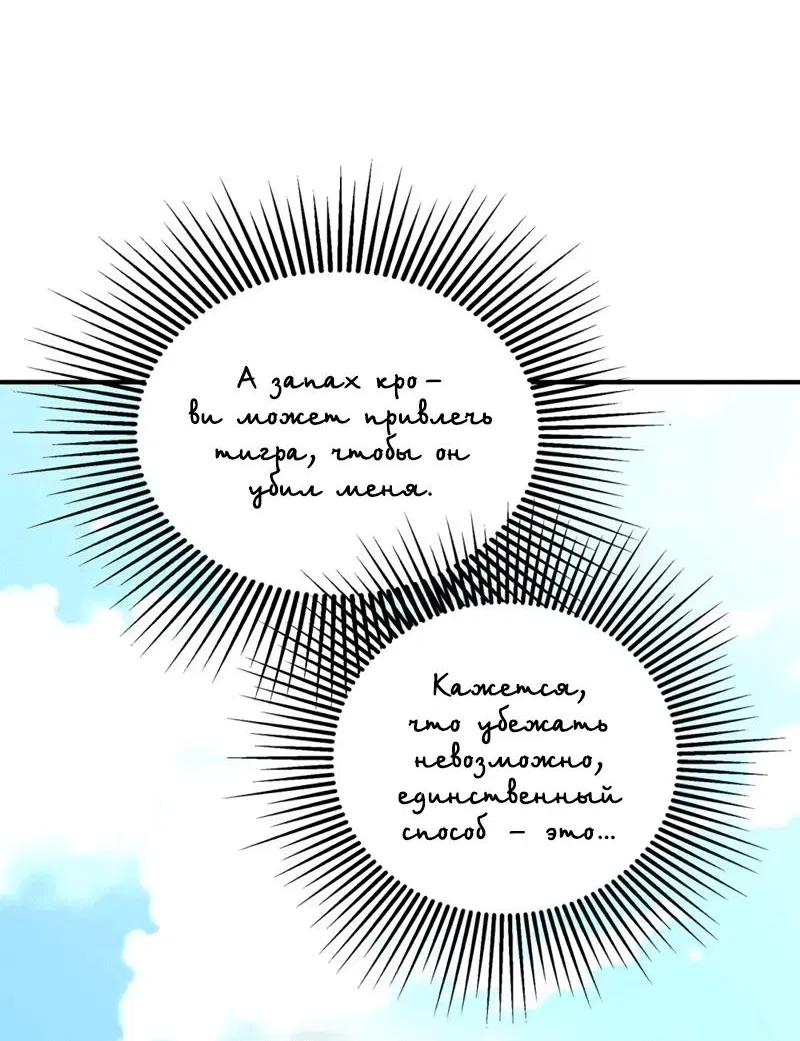 А запах кро-
ви может привлечь
тигра, чтобы он
убил меня.
Кажется,
что убежать
невозможно,
единственный
способ - это...